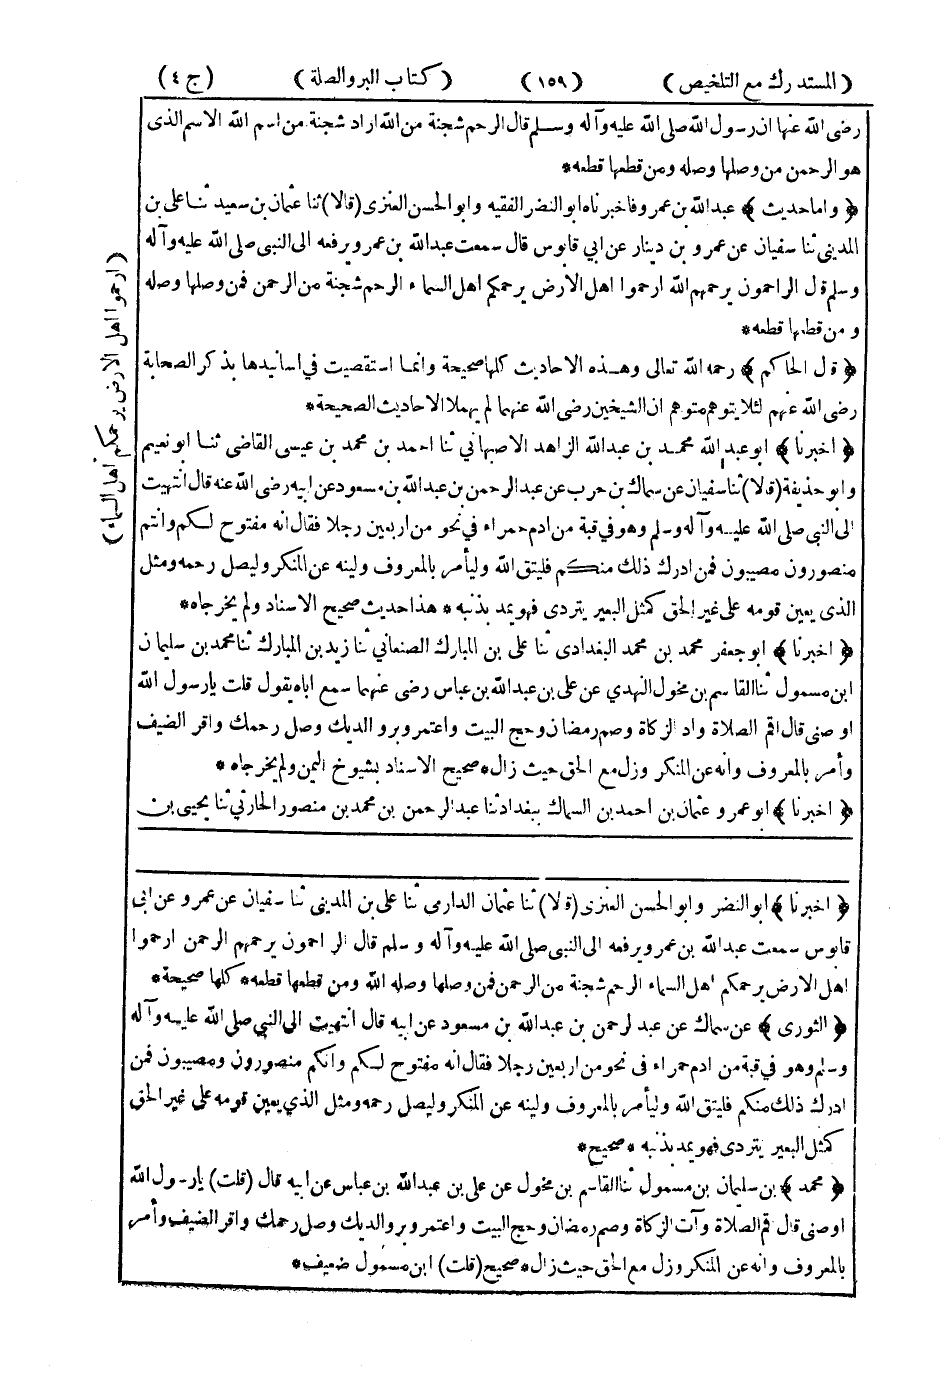 (المستدرك مع التلخيص) (١٥٩) (كتاب البر والصلة) (ج ٤)
رضى الله عنها ان رسول الله صلى الله عليه وآله وسلم قال الرحم شجنة من الله اراد شجنة من اسم الله الاسم الذى
هو الرحمن من وصلها وصله ومن قطعها قطعه*
﴿ واما حديث ﴾ عبد الله بن عمرو فاخبرناه ابو النضر الفقيه وابو الحسن العنزى (قالا) ثنا عثمان بن سعيد ثنا على بن
المدينى ثنا سفيان عن عمرو بن دينار عن ابي قابوس قال سمعت عبد الله بن عمرو يرفعه الى النبى صلى الله عليه وآله
وسلم قال الراحمون يرحمهم الله ارحموا اهل الارض يرحمكم اهل السماء الرحم شجنة من الرحمن فمن وصلها وصله
ومن قطعها قطعه*
﴿ قال الحاكم ﴾ رحمه الله تعالى وهذه الاحاديث كلها صحيحة وانما استقصيت في اسانيدها بذكر الصحابة
رضى الله عنهم لئلا يتوهم متوهم ان الشيخين رضى الله عنهما لم يهملا الاحاديث الصحيحة*
﴿ اخبرنا ﴾ ابو عبد الله محمد بن عبد الله الزاهد الاصبهاني ثنا احمد بن محمد بن عيسى القاضى ثنا ابو نعيم
وابو حذيفة (قالا) ثنا سفيان عن سماك بن حرب عن عبد الرحمن بن عبد الله بن مسعود عن ابيه رضى الله عنه قال انتهيت
الى النبى صلى الله عليه وآله وسلم وهو في قبة من ادم حمراء في نحو من اربعين رجلا فقال انه مفتوح لكم وانتم
منصورون مصيبون فمن ادرك ذلك منكم فليتق الله وليأمر بالمعروف ولينه عن المنكر وليصل رحمه ومثل
الذى يعين قومه على غير الحق كمثل البعير يتردى فهو يمد بذنبه * هذا حديث صحيح الاسناد ولم يخرجاه*
﴿ اخبرنا ﴾ ابو جعفر محمد بن محمد البغدادى ثنا على بن المبارك الصنعاني ثنا زيد بن المبارك ثنا محمد بن سليمان
ابن مسمول ثنا القاسم بن مخول النهدي عن على بن عبد الله بن عباس رضى عنهما سمع اباه يقول قلت يا رسول الله
اوصنى قال اقم الصلاة واد الزكاة وصم رمضان وحج البيت واعتمر وبر والديك وصل رحمك واقر الضيف
وأمر بالمعروف وانه عن المنكر وزل مع الحق حيث زال* صحيح الاسناد بشيوخ اليمن ولم يخرجاه *
﴿ اخبرنا ﴾ ابو عمرو عثمان بن احمد بن السماك ببغداد ثنا عبد الرحمن بن محمد بن منصور الحارثي ثنا يحيى بن
(ارحموا اهل الارض يرحمكم اهل السماء)
﴿ اخبرنا ﴾ ابو النضر وابو الحسن العنزى (قالا) ثنا عثمان الدارمى ثنا على بن المدينى ثنا سفيان عن عمرو عن ابى
قابوس سمعت عبد الله بن عمرو يرفعه الى النبى صلى الله عليه وآله وسلم قال الراحمون يرحمهم الرحمن ارحموا
اهل الارض يرحمكم اهل السماء الرحم شجنة من الرحمن فمن وصلها وصله الله ومن قطعها قطعه* كلها صحيحة*
﴿ الثورى ﴾ عن سماك عن عبد لرحمن بن عبد الله بن مسعود عن ابيه قال انتهيت الى النبي صلى الله عليه وآله
وسلم وهو في قبة من ادم حمراء فى نحو من اربعين رجلا فقال انه مفتوح لكم وانكم منصورون ومصيبون فمن
ادرك ذلك منكم فليتق الله وليأمر بالمعروف ولينه عن المنكر وليصل رحمه ومثل الذي يعين قومه على غير الحق
كمثل البعير يتردى فهو يمد بذنبه * صحيح*
﴿ محمد ﴾ بن سليمان بن مسمول ثنا القاسم بن مخول عن على بن عبد الله بن عباس عن ابيه قال (قلت) يا رسول الله
اوصنى قال قم الصلاة وآت الزكاة وصم رمضان وحج البيت واعتمر وبر والديك وصل رحمك واقر الضيف وأمر
بالمعروف وانه عن المنكر وزل مع الحق حيث زال* صحيح (قلت) ابن مسمول ضعيف*